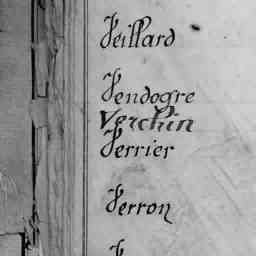 Veillard
Vendogre
Verchin
Verrier
Verron
V